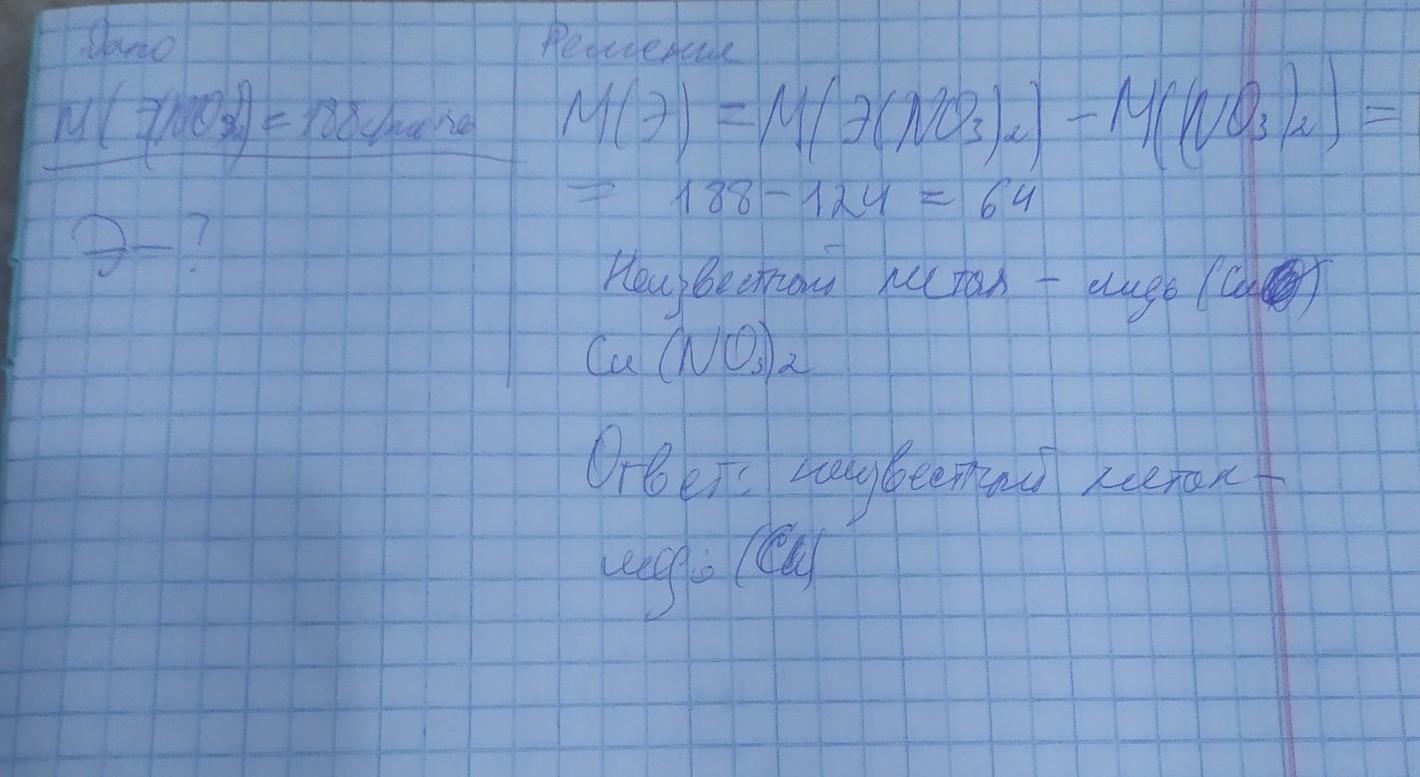 Дано
M(Э(NO3)2) = 188 г/моль
Э – ?
Решение
M(Э) = M(Э(NO3)2) – M((NO3)2) =
= 188 – 124 = 64
Неизвестный метал – медь (Cu)
Cu(NO3)2
Ответ: неизвестный метал –
медь (Cu)